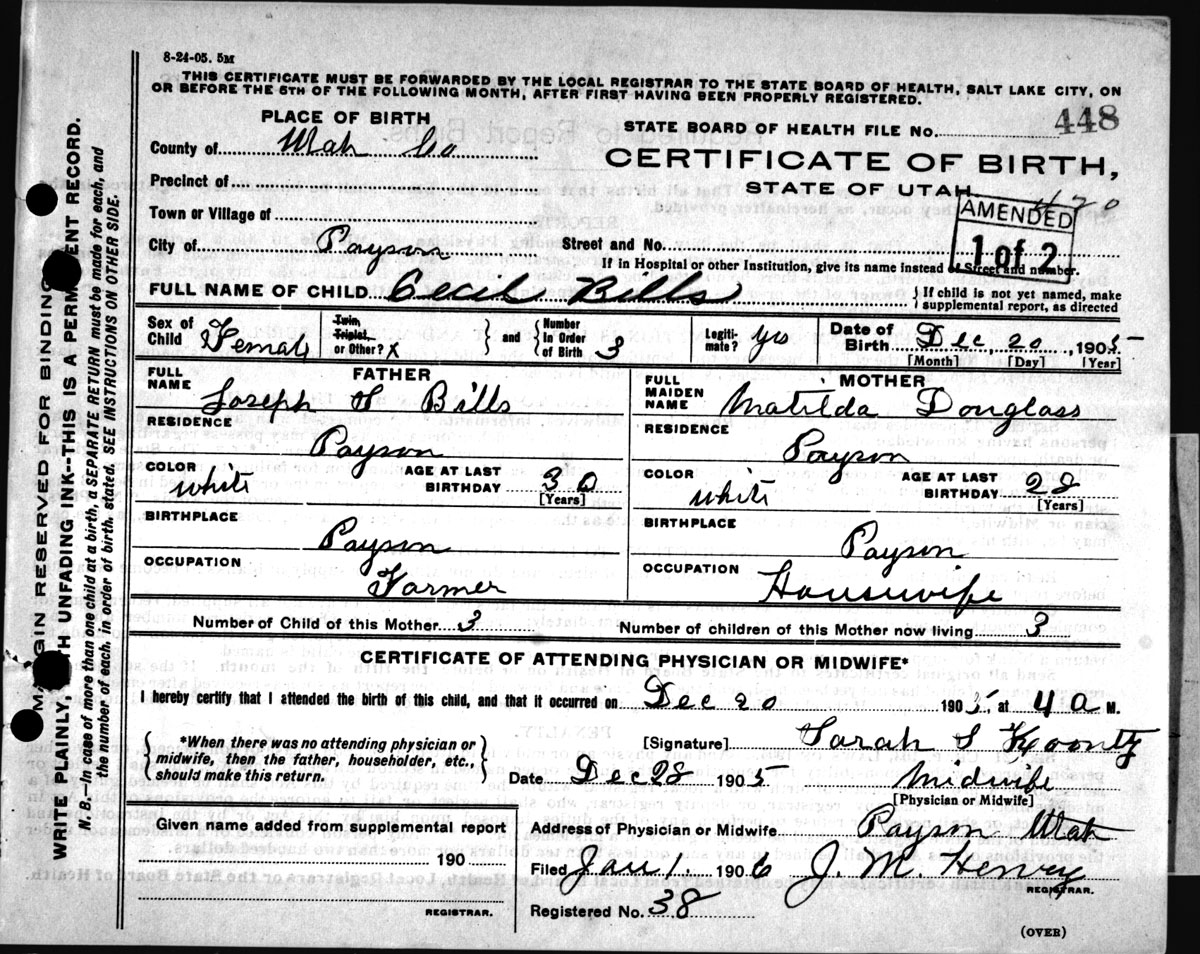 8-24-05. 5M
THIS CERTIFICATE MUST BE FORWARDED BY THE LOCAL REGISTRAR TO THE STATE BOARD OF HEALTH, SALT LAKE CITY, ON
OR BEFORE THE 5TH OF THE FOLLOWING MONTH, AFTER FIRST HAVING BEEN PROPERLY REGISTERED.
PLACE OF BIRTH
STATE BOARD OF HEALTH FILE No. 448
County of Utah Co
CERTIFICATE OF BIRTH,
STATE OF UTAH.
Precinct of
420
AMENDED
1 of 2
Town or Village of
City of Payson Street and No.
If in Hospital or other Institution, give its name instead of Street and number.
FULL NAME OF CHILD Cecil Bills } If child is not yet named, make supplemental report, as directed
Sex of Child Female Twin, Triplet, or Other? X } and { Number in Order of Birth 3 Legitimate? yes Date of Birth Dec, 20, 1905
[Month] [Day] [Year]
FATHER
FULL NAME Joseph S Bills
RESIDENCE Payson
COLOR white AGE AT LAST BIRTHDAY 30 [Years]
BIRTHPLACE Payson
OCCUPATION Farmer
MOTHER
FULL MAIDEN NAME Matilda Douglass
RESIDENCE Payson
COLOR white AGE AT LAST BIRTHDAY 28 [Years]
BIRTHPLACE Payson
OCCUPATION Housewife
Number of Child of this Mother 3 Number of children of this Mother now living 3
CERTIFICATE OF ATTENDING PHYSICIAN OR MIDWIFE*
I hereby certify that I attended the birth of this child, and that it occurred on Dec 20 1905, at 4 a M.
*When there was no attending physician or
midwife, then the father, householder, etc.,
should make this return.
[Signature] Sarah S Koontz
Date Dec 28 1905 Midwife
[Physician or Midwife]
Given name added from supplemental report
190
REGISTRAR.
Address of Physician or Midwife Payson Utah
Filed Jan 1. 1906 J. M. Henry
REGISTRAR.
Registered No. 38
(OVER)
MARGIN RESERVED FOR BINDING
WRITE PLAINLY, WITH UNFADING INK--THIS IS A PERMANENT RECORD.
N. B.--In case of more than one child at a birth, a SEPARATE RETURN must be made for each, and
the number of each, in order of birth, stated. SEE INSTRUCTIONS ON OTHER SIDE.